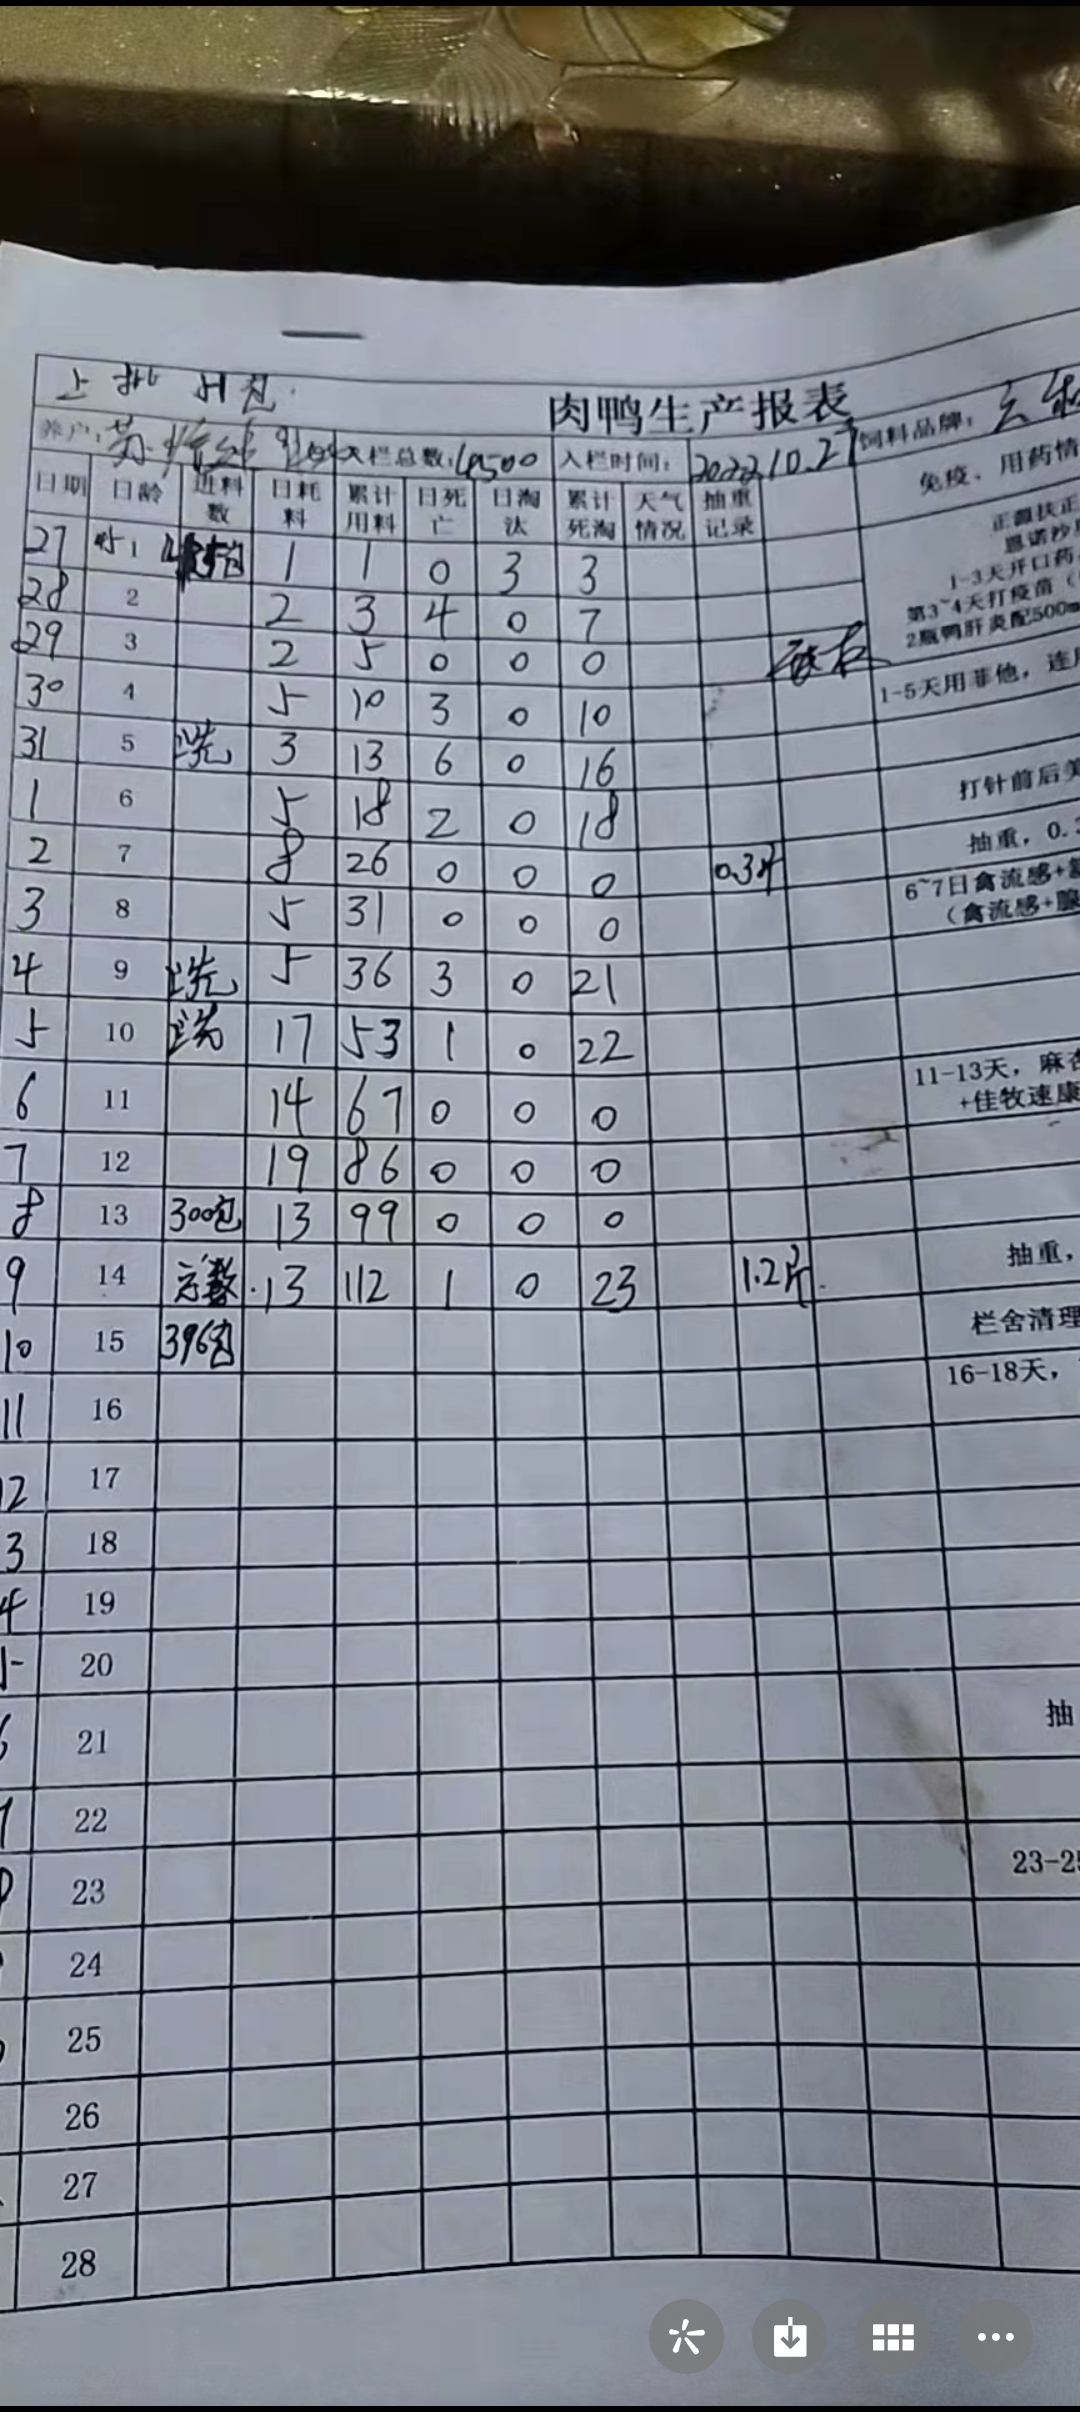 肉鸭生产报表
养户: 入栏总数:4500 入栏时间: 2022.10.27 饲料品牌:
日期 日龄 进料数 日耗料 累计用料 日死亡 日淘汰 累计死淘 天气情况 抽重记录 免疫、用药情
27 1 1 1 0 3 3 正源扶正
恩诺沙
1-3天开口药
28 2 2 3 4 0 7 第3~4天打疫苗（
2瓶鸭肝炎配500m
29 3 2 5 0 0 0
30 4 5 10 3 0 10 1-5天用菲他，连
31 5 3 13 6 0 16
1 6 5 18 2 0 18 打针前后美
2 7 8 26 0 0 0 0.3斤 抽重，0.3
3 8 5 31 0 0 0 6~7日禽流感+
（禽流感+腺
4 9 5 36 3 0 21
5 10 17 53 1 0 22
6 11 14 67 0 0 0 11-13天，麻杏
+佳牧速康
7 12 19 86 0 0 0
8 13 300包 13 99 0 0 0
9 14 13 112 1 0 23 1.2斤 抽重，
10 15 396包 栏舍清理
11 16 16-18天，
12 17
3 18
4 19
20
21 抽
22
23 23-25
24
25
26
27
28